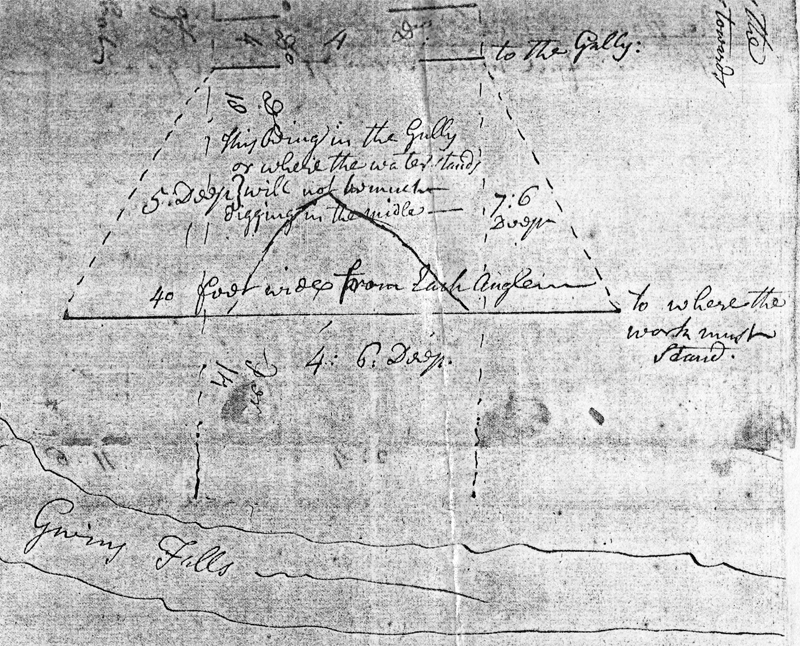 the
towards
4
4
to the Gully:
18
This being in the Gully
or where the water stands
5 Deep will not be much
digging in the midle —
7:6
Deep
40 foot wide from Each Angle
to where the
work must
Stand.
4: 6: Deep.
14
Gwins Falls